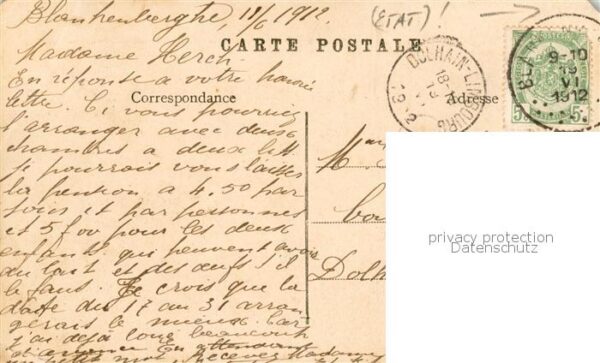 Blankenberghe, 11/6 1912
(ETAT)!
CARTE POSTALE
Madame Herch
En réponse a votre
lettre. Si vous pourriez
l'arranger avec deux
chambres a deux lits
je pourrais vous laisser
la pension a 4.50 par
jour et par personnes
et 5 f 00 pour les deux
enfants qui peuvent avoir
du lait et des oeufs s'il
le faut. Je crois que la
date du 17 au 31 arran
gerais le mieux. Car
j'ai déjà loué beaucoup
d'avance. En attendant
mot. Recevez Madame
Correspondance
Adresse
DOLHAIN-LIMBOURG
9-10
1912
5
5
M
Dolh
privacy protection
Datenschutz